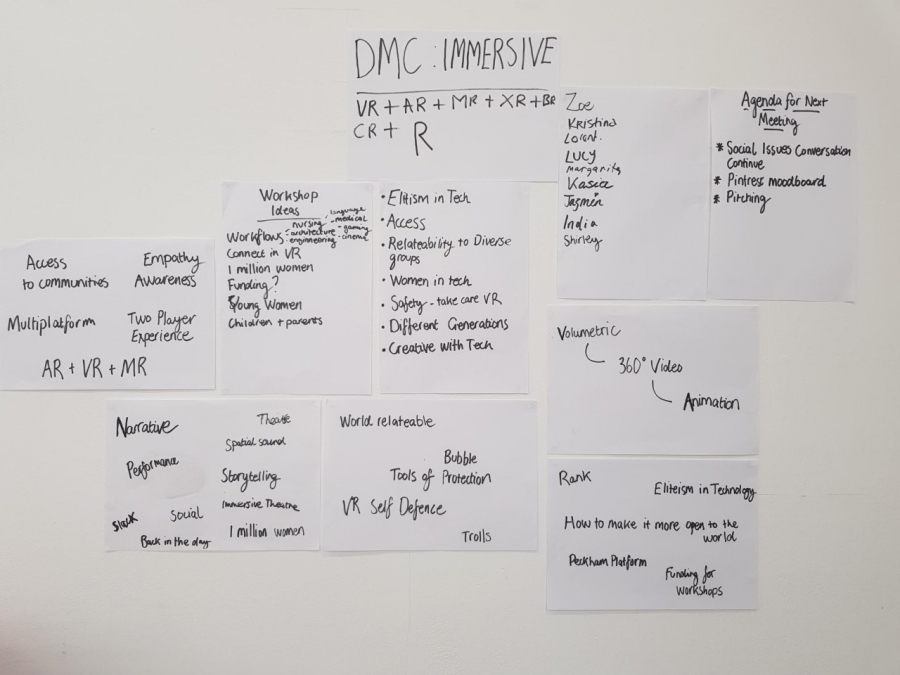 DMC : IMMERSIVE
VR + AR + MR + XR + BR
CR + R
Zoe
Kristina
Lorant.
LUCY
Margarita
Kasia
Jasmin
India
Shirley
Agenda for Next
Meeting
* Social Issues Conversation
Continue
* Pintress moodboard
* Pitching
Workshop
Ideas
language
nursing - medical
Workflows - architecture - gaming
- engineering - cinema
Connect in VR
1 million women
Funding?
Young Women
Children + parents
• Elitism in Tech
• Access
• Relateability to Diverse
groups
• Women in tech
• Safety - take care VR
• Different Generations
• Creative with Tech
Access
to communities
Empathy
Awareness
Multiplatform
Two Player
Experience
AR + VR + MR
Volumetric
360° Video
Animation
Narrative
Theatre
Spatial sound
Performance
Storytelling
Immersive Theatre
Slack
Social
1 million women
Back in the day
World relateable
Bubble
Tools of Protection
VR Self Defence
Trolls
Rank
Eliteism in Technology
How to make it more open to the
world
Peckham Platform
Funding for
workshops